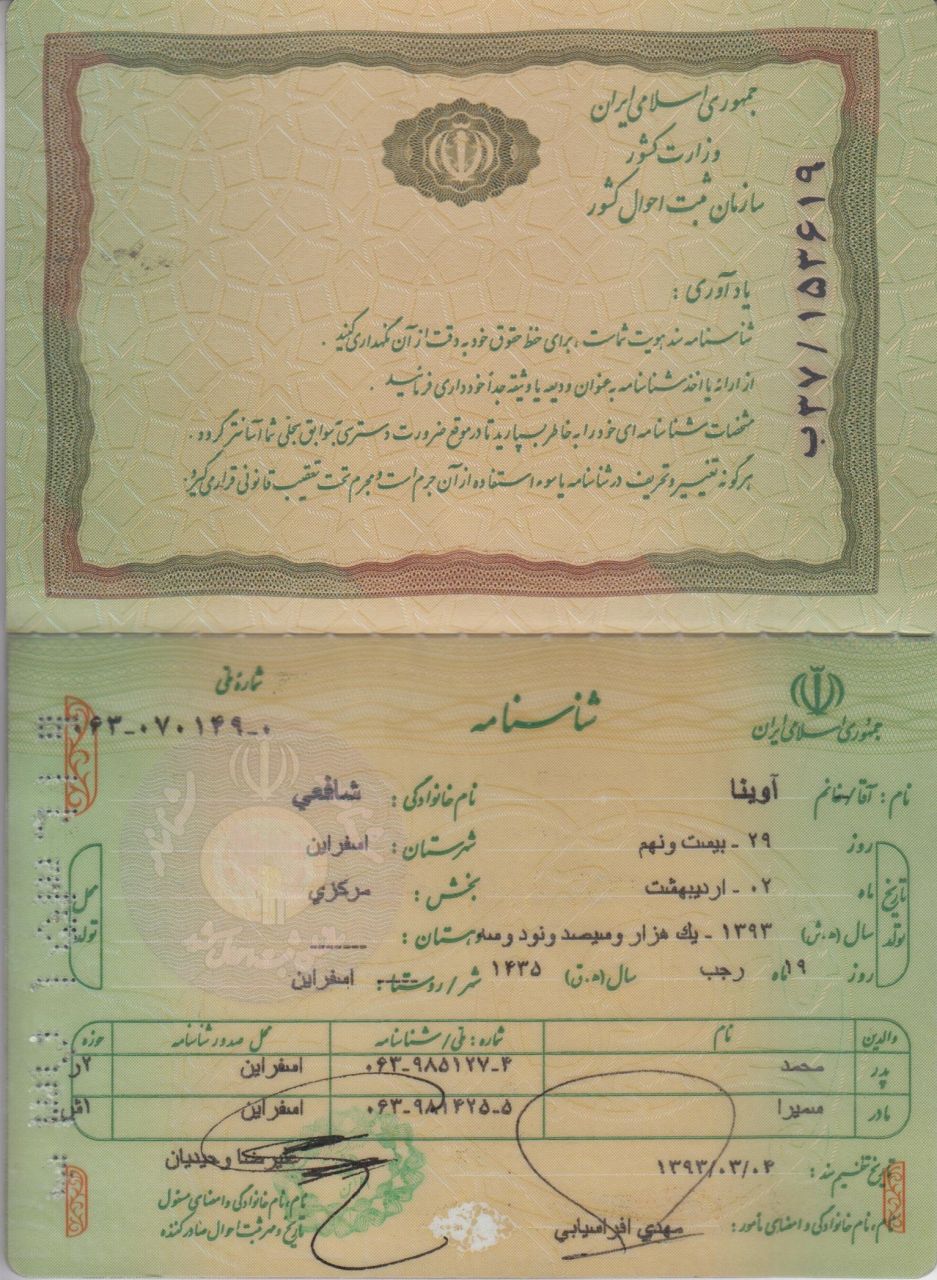 جمهوری اسلامی ایران
وزارت کشور
سازمان ثبت احوال کشور
ب۳۷/۱۵۳۶۱۹
یادآوری :
شناسنامه سند هویت شماست ، برای حفظ حقوق خود به دقت از آن نگهداری کنید .
از ارائه یا اخذ شناسنامه به عنوان ودیعه یا وثیقه جداً خودداری فرمائید .
مشخصات شناسنامه ای خود را به خاطر بسپارید تا در موقع ضرورت دسترسی به سوابق سجلی شما آسانتر گردد .
هرگونه تغییر و تحریف در شناسنامه یا سوء استفاده از آن جرم است و مجرم تحت تعقیب قانونی قرار می گیرد .
جمهوری اسلامی ایران
شناسنامه
شماره ملی
۰۶۳-۰۷۰۱۴۹-۰
نام : آقا/خانم آوینا نام خانوادگی : شافعي
تاریخ تولد
روز ۲۹ - بیست و نهم
ماه ۰۲ - اردیبهشت
سال (ه.ش) ۱۳۹۳ - یك هزار و سیصد و نود و سه
روز ۱۹ ماه رجب سال (ه.ق) ۱۴۳۵
محل تولد
شهرستان : اسفراین
بخش : مرکزي
دهستان : -------
شهر/روستا : اسفراین
والدین نام شماره : ملی/شناسنامه محل صدور شناسنامه حوزه
پدر محمد ۰۶۳-۹۸۵۱۲۷-۴ اسفراین ۲ر
مادر سمیرا ۰۶۳-۹۸۱۴۲۵-۵ اسفراین ۱ش
تاریخ تنظیم سند : ۱۳۹۳/۰۳/۰۴
نام، نام خانوادگی و امضای مأمور : مهدي افراسیابي
علیرضا وحیدیان
نام، نام خانوادگی و امضای مسئول
تاریخ و مهر ثبت احوال صادرکننده